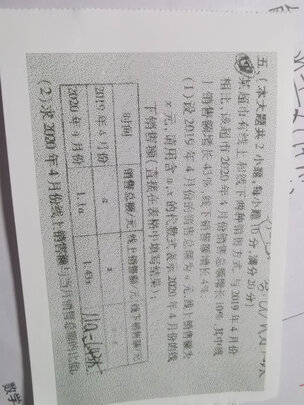 五、(本大题共 2 小题,每小题 10 分,满分 20 分)
某超市有线上和线下两种销售方式.与 2019 年 4 月份
相比,该超市 2020 年 4 月份销售总额增长 10%,其中线
上销售额增长 43%,线下销售额增长 4%.
(1)设 2019 年 4 月份的销售总额为 a 元,线上销售额为
x 元,请用含 a,x 的代数式表示 2020 年 4 月份的线
下销售额(直接在表格中填写结果);
时间 销售总额/元 线上销售额/元 线下销售额/元
2019 年 4 月份 a x a-x
2020 年 4 月份 1.1a 1.43x
(2)求 2020 年 4 月份线上销售额与当月销售总额的比值.
数学